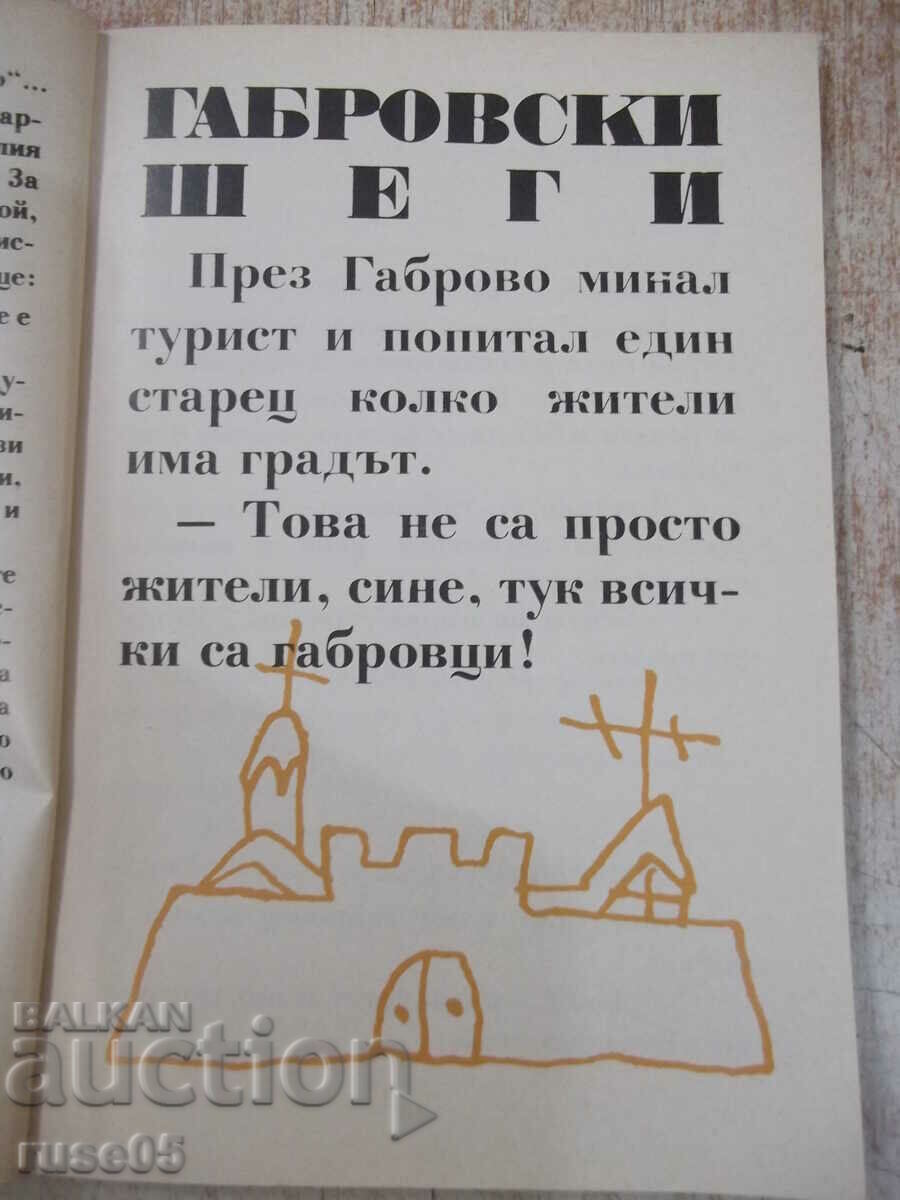 о“...
ар-
лия
За
ой,
ис-
ще:
ее
у-
и-
зи
и.
и
те
с-
о-
а
а
о
о
ГАБРОВСКИ
ШЕГИ
През Габрово минал
турист и попитал един
старец колко жители
има градът.
— Това не са просто
жители, сине, тук всич-
ки са габровци!
BALKAN
auction
ruse05